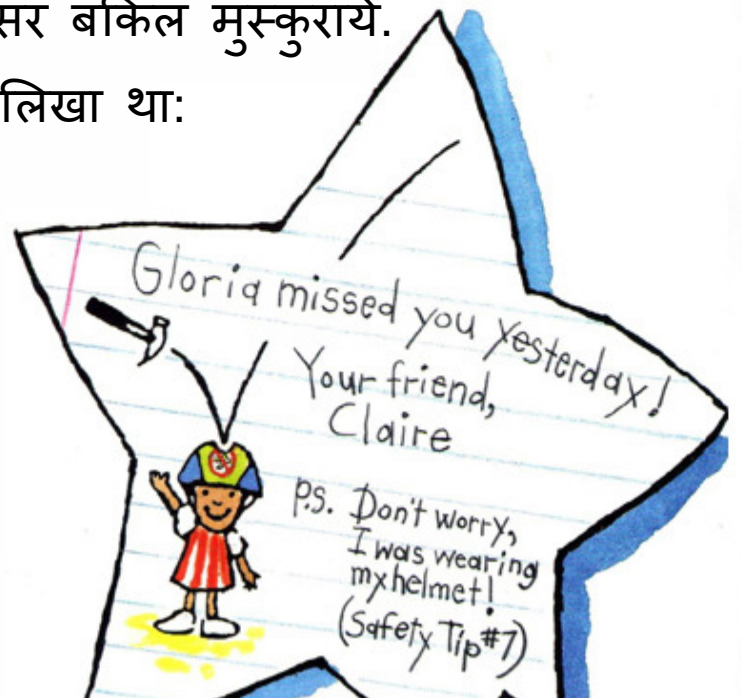 सर बकिल मुस्कुराये.
लिखा था:
Gloria missed you yesterday!
Your friend,
Claire
P.S. Don't worry,
I was wearing
my helmet!
(Safety Tip #7)